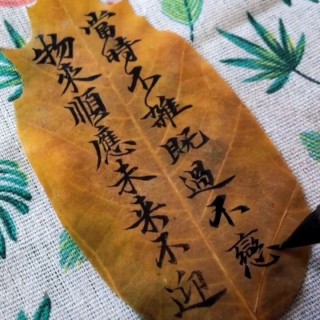 當時不雜既過不戀
物來順應未来不迎